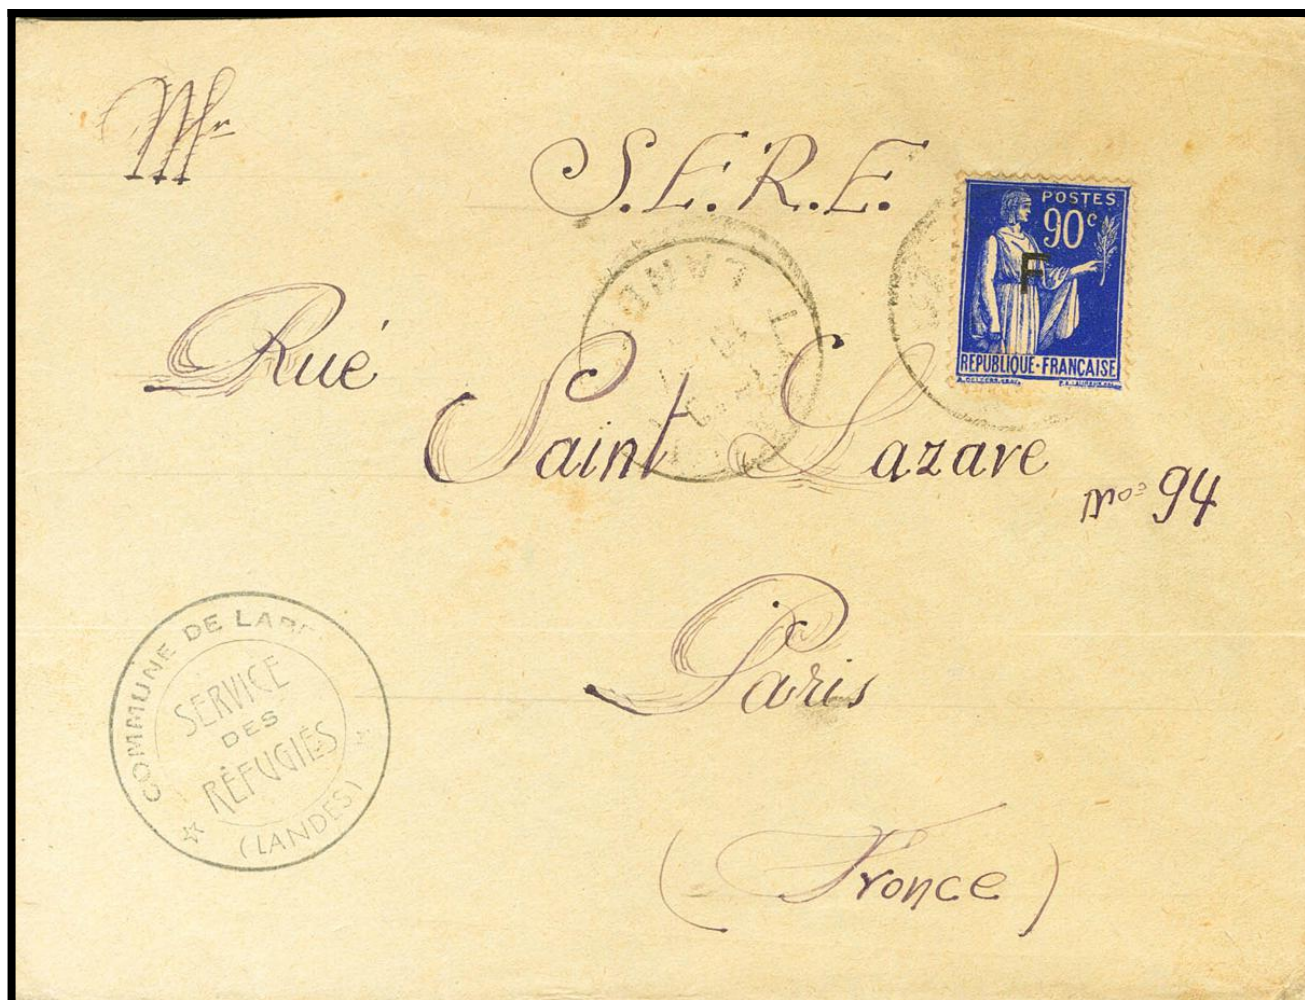 Mr
S.E.R.E.
POSTES
90c
F
REPUBLIQUE-FRANÇAISE
Rué
Saint Lazare
no= 94
Paris
(Fronce)
COMMUNE DE
SERVICE
DES
RÉFUGIÉS
(LANDES)